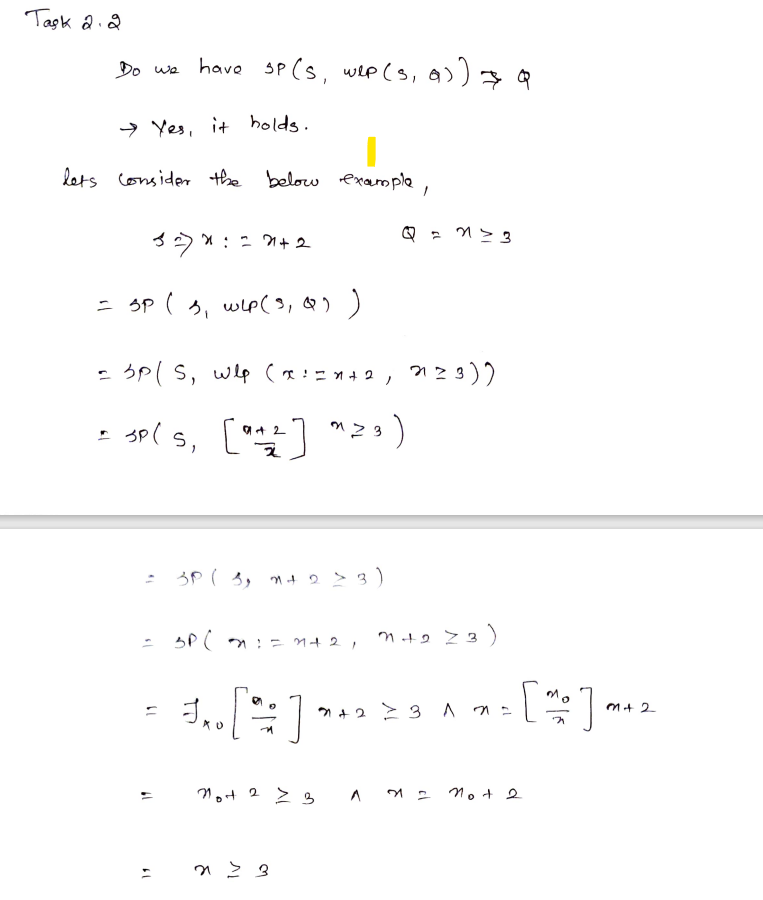 Task 2.2
Do we have SP(S, wlp(S, Q)) ⇒ Q
→ Yes, it holds.
lets consider the below example,
S ⇒ x := x+2    Q = x ≥ 3
= SP(S, wlp(S, Q))
= SP(S, wlp(x := x+2, x ≥ 3))
= SP(S, [x+2/x] x ≥ 3)
= SP(S, x+2 ≥ 3)
= SP(x := x+2, x+2 ≥ 3)
= ∃x₀ [x₀/x] x+2 ≥ 3 ∧ x = [x₀/x] x+2
= x₀+2 ≥ 3 ∧ x = x₀+2
= x ≥ 3